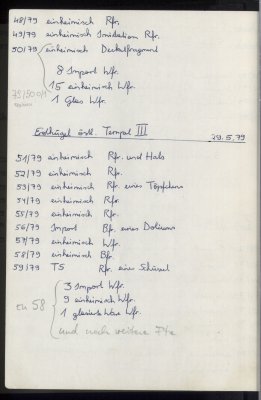 48/79 einheimisch Rfr.
49/79 einheimisch Imitation Rfr.
50/79 einheimisch Deckelfragment
8 Import Wfr.
15 einheimisch Wfr.
1 Glas Wfr.
Erdhügel östl. Tempel III 29.5.79
51/79 einheimisch Rfr. und Hals
52/79 einheimisch Rfr.
53/79 einheimisch Rfr. eines Töpfchens
54/79 einheimisch Rfr.
55/79 einheimisch Rfr.
56/79 Import Bfr. eines Doliums
57/79 einheimisch Wfr.
58/79 einheimisch Bfr.
59/79 TS Rfr. einer Schüssel
zu 58
3 Import Wfr.
9 einheimisch Wfr.
1 glasierte Ware Wfr.
und noch weitere